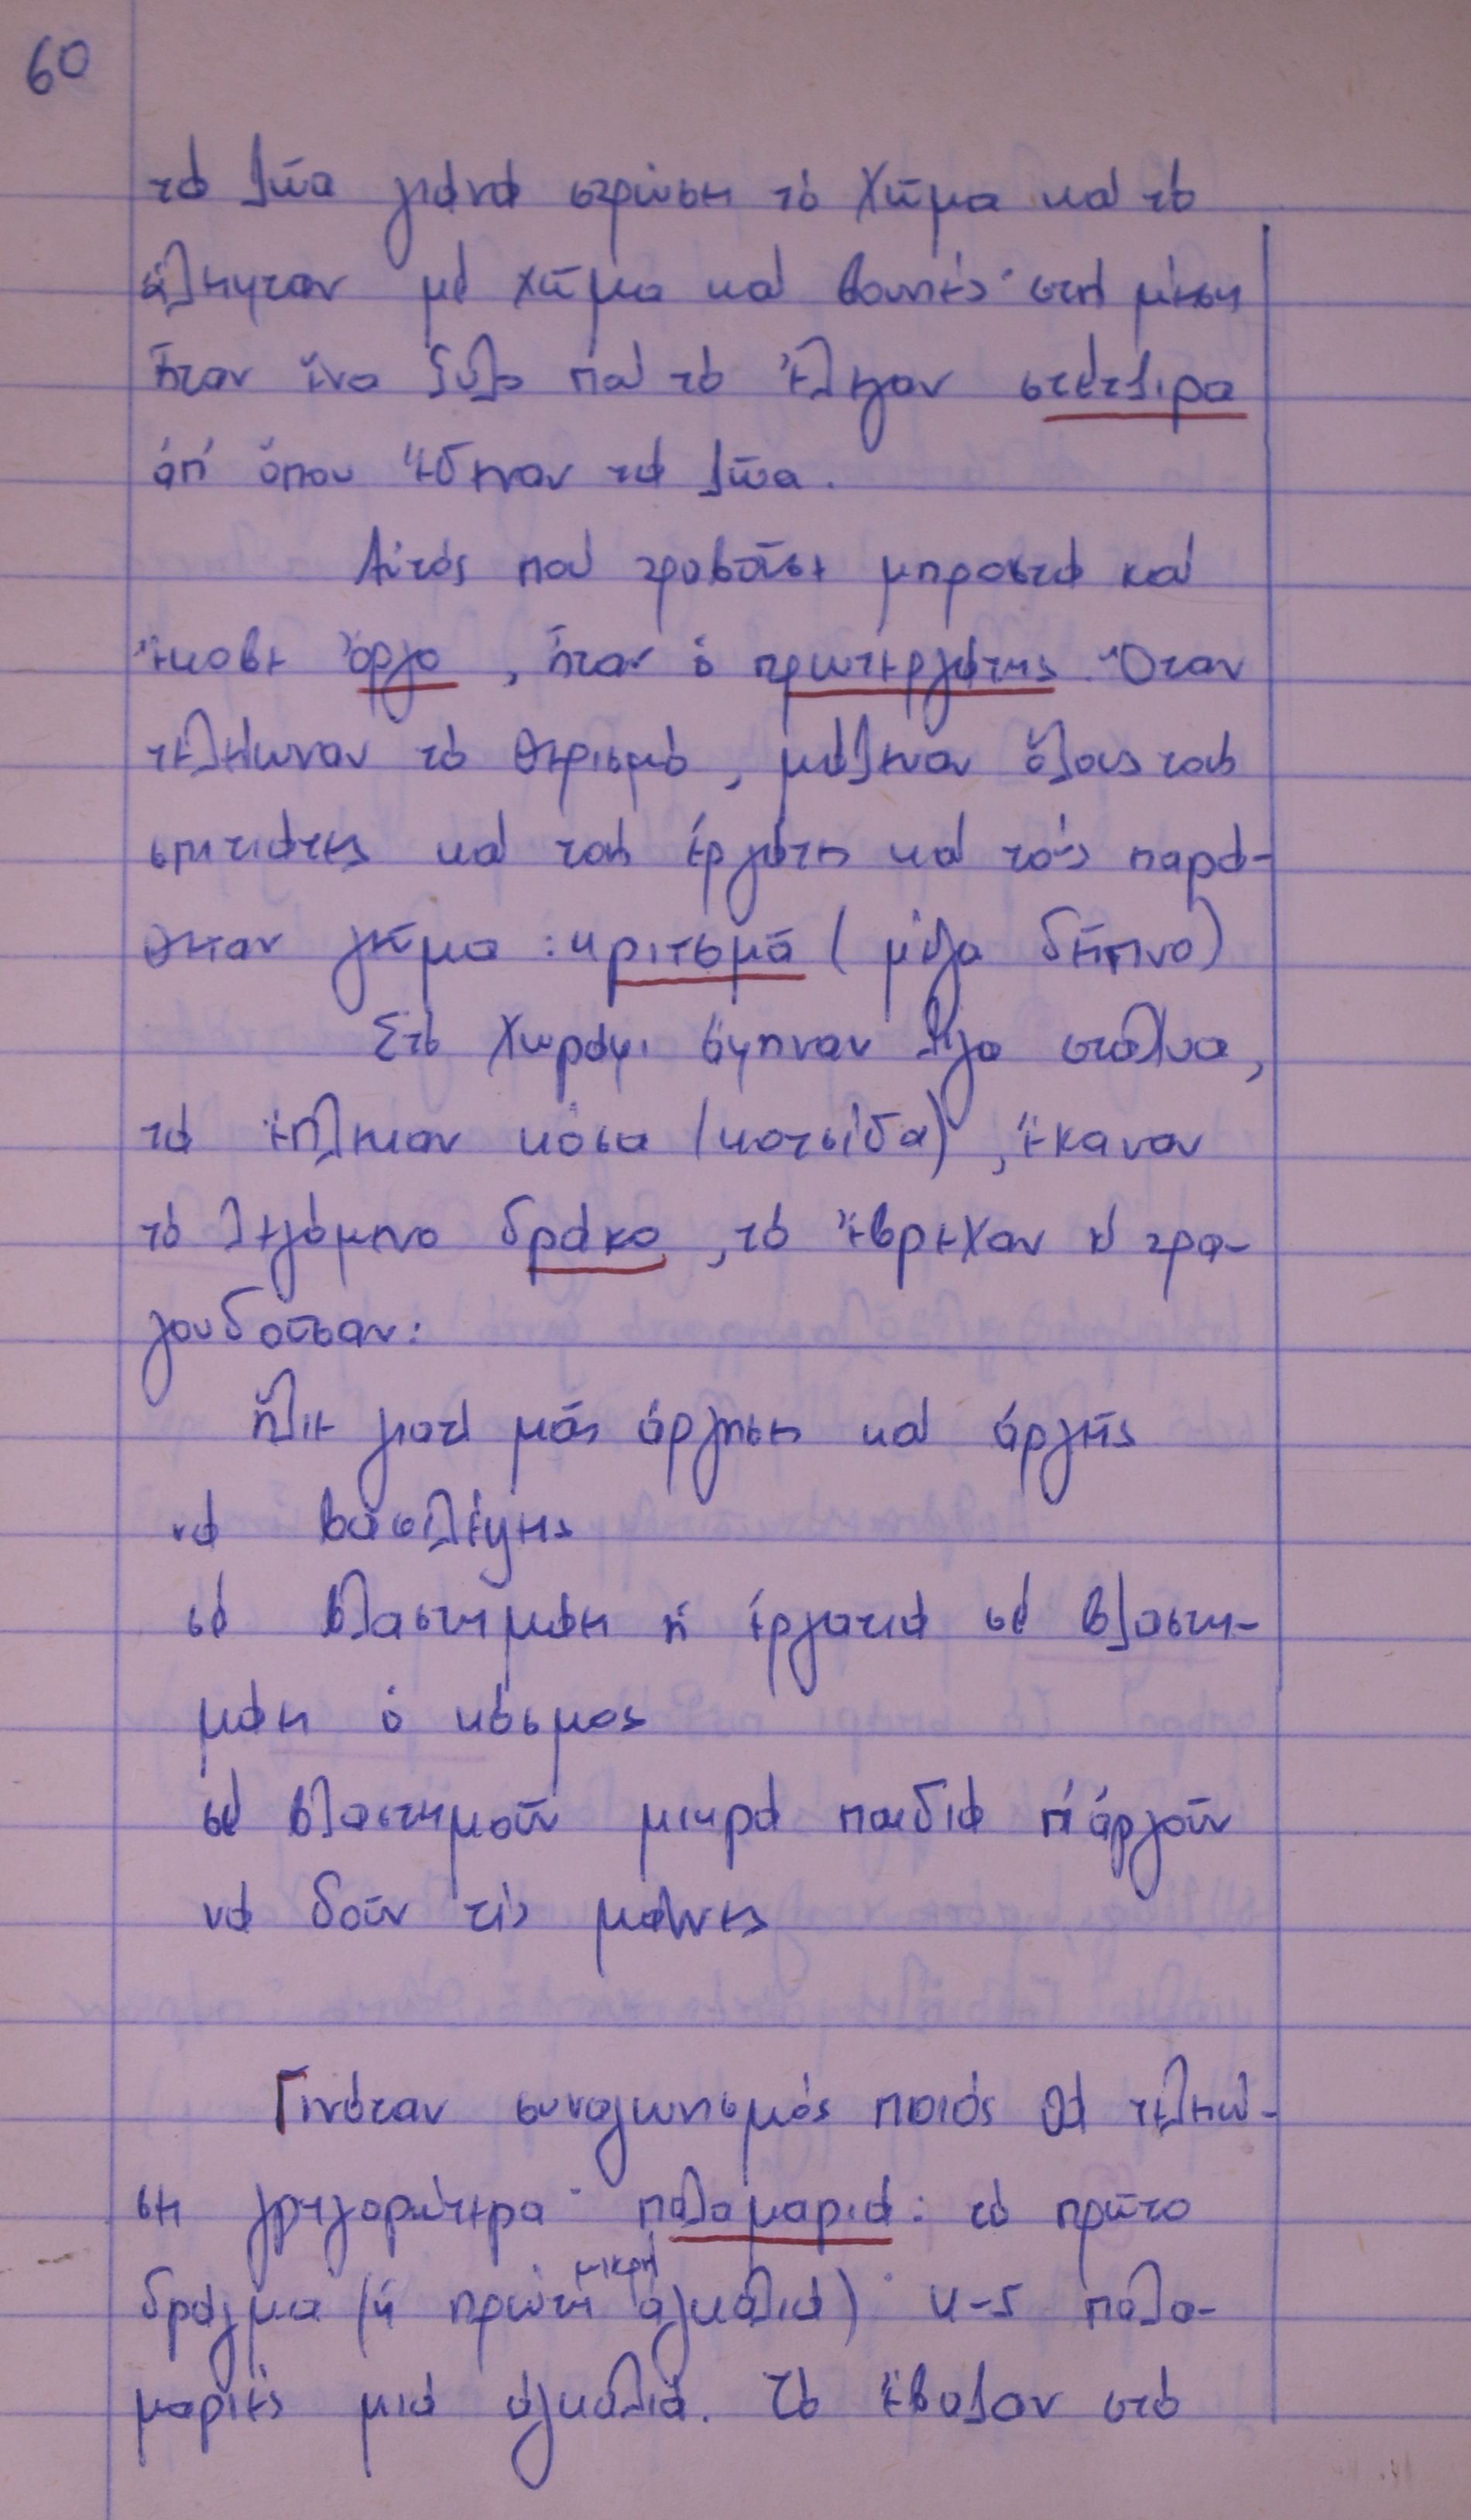 60
τά ζῶα γιά νά στρώση τό χῶμα καί τό
ἄλειφταν μέ χῶμα καί βουνιές· στή μέση
ἦταν ἕνα ξύλο πού τό ἔλεγαν στέτζερα
ἀπ' ὅπου ἔδεναν τά ζῶα.
Αὐτός πού τραβοῦσε μπροστά καί
ἔκοβε ὄργο, ἦταν ὁ πρωτεργάτης. Ὅταν
τελείωναν τό θερισμό, μάζευαν ὅλους τούς
σπιτιάτες καί τούς ἐργάτες καί τούς παρά-
θεταν γεῦμα: κριτσμᾶ (μέγα δεῖπνο)
Στό χωράφι ἄφηναν λίγα στάχυα,
τά ἔπλεκαν κόσα (κοτσίδα), ἔκαναν
τό λεγόμενο δράκο, τό ἔβρεχαν κ' τρα-
γουδοῦσαν:
Ἥλιε γιατί μᾶς ἄργησες καί ἀργεῖς
νά βασιλέψης
σέ βλαστημάει ἡ ἐργατιά σέ βλαστη-
μάει ὁ κόσμος
σέ βλαστημοῦν μικρά παιδιά π' ἀργοῦν
νά δοῦν τίς μάννες
Γινόταν συναγωνισμός ποιός θά τελειώ-
σει γρηγορώτερα· παλαμαριά: τό πρῶτο
δράγμα (ἡ πρώτη μικρή ἀγκαλιά)· 4-5 παλα-
μαριές μιά ἀγκαλιά. Τό ἔβαζαν στό